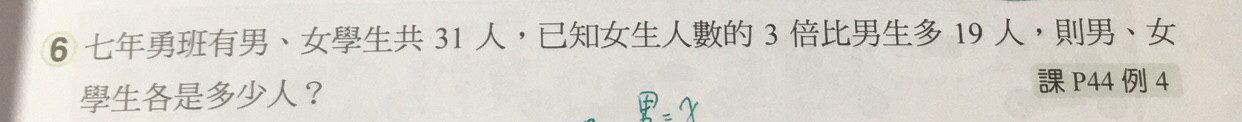 6 七年勇班有男、女學生共 31 人，已知女生人數的 3 倍比男生多 19 人，則男、女
學生各是多少人？
課 P44 例 4
男=x